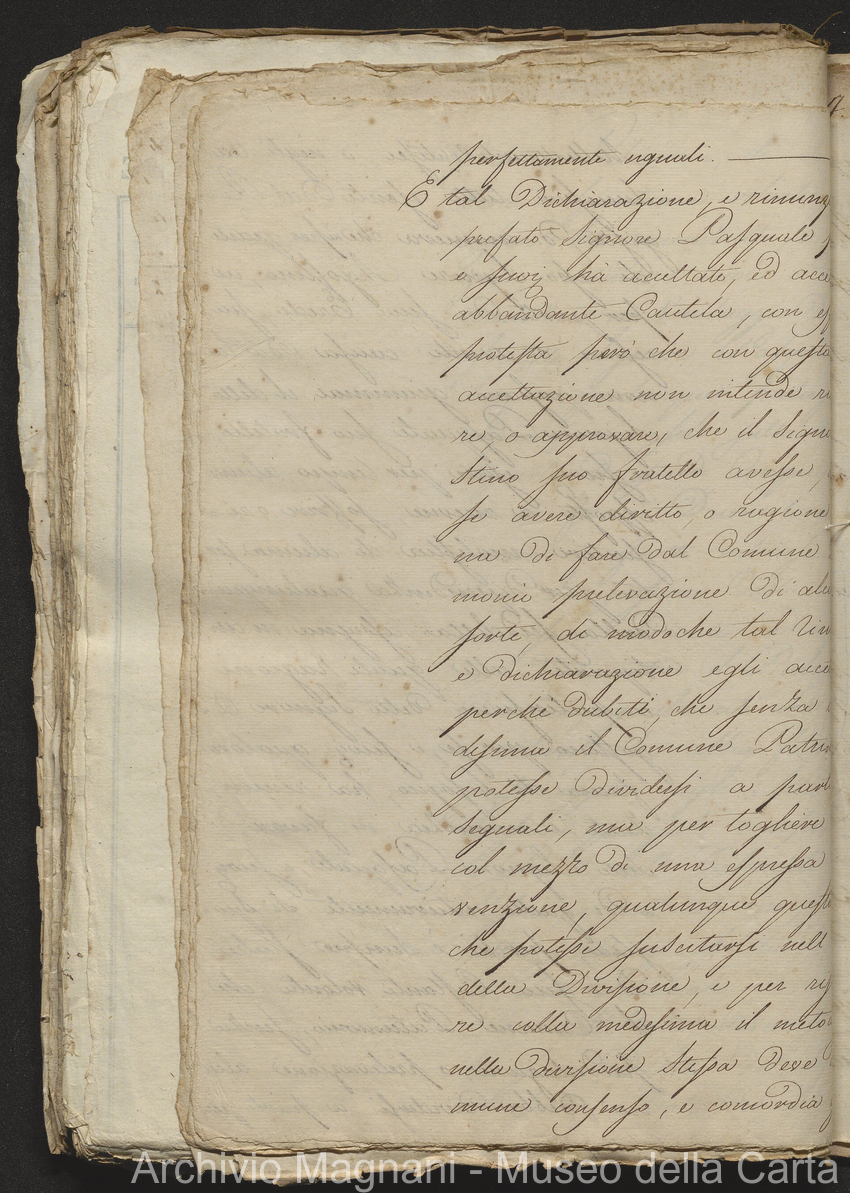 perfettamente uguali.
E tal Dichiarazione, e rinunz
prefato Signore Pasquale
e suoi hà accettato, ed acce
abbandante Cautela, con es
protesta però che con questa
accettazione non intende ri
re, o approvare, che il Signo
stino suo fratello avesse,
se avere diritto, o ragione
na di fare dal Comune
monio prelevazione di alcu
sorte, di modoche tal rin
e dichiarazione egli acce
perchè dubiti, che senza
desima il Comune Patri
potesse dividersi a part
seguali, ma per togliere
col mezzo di una espressa
venzione, qualunque questi
che potesse suscitarsi nell
della Divisione, e per ris
re colla medesima il meto
nella divisione stessa deve
mune consenso, e concordia
Archivio Magnani - Museo della Carta